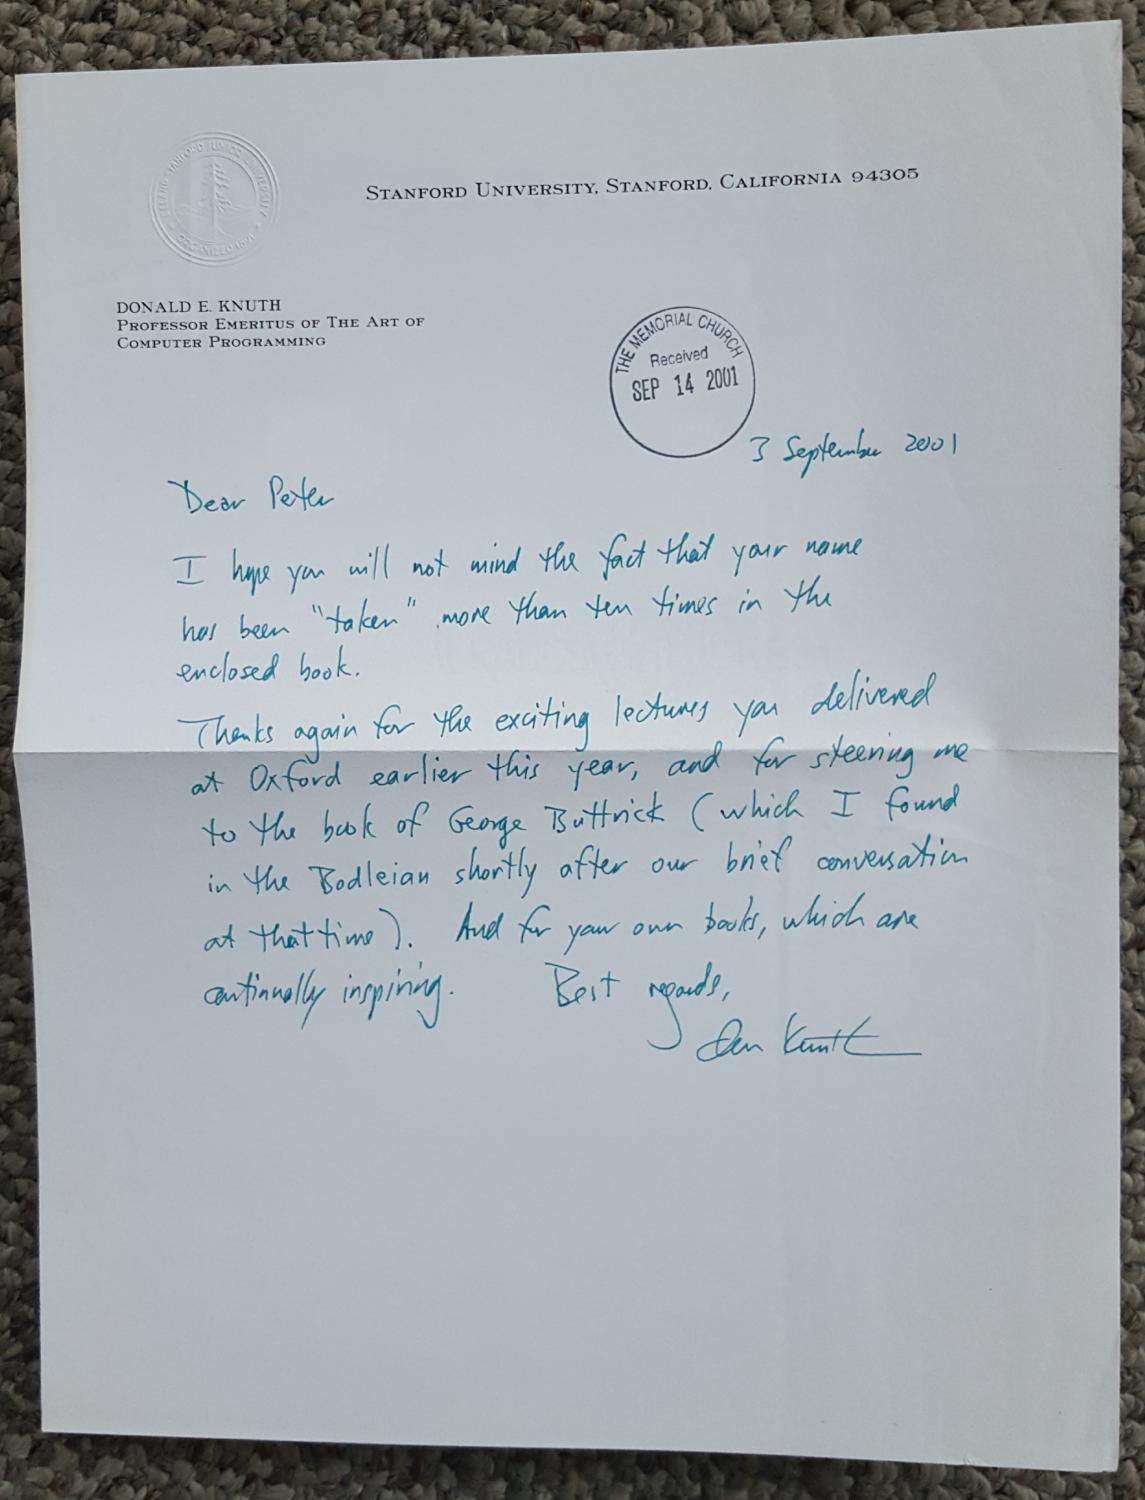 LELAND STANFORD JUNIOR UNIVERSITY
ORGANIZED 1891
STANFORD UNIVERSITY, STANFORD, CALIFORNIA 94305
DONALD E. KNUTH
PROFESSOR EMERITUS OF THE ART OF
COMPUTER PROGRAMMING
THE MEMORIAL CHURCH
Received
SEP 14 2001
3 September 2001
Dear Peter
I hope you will not mind the fact that your name
has been "taken" more than ten times in the
enclosed book.
Thanks again for the exciting lectures you delivered
at Oxford earlier this year, and for steering me
to the book of George Buttrick (which I found
in the Bodleian shortly after our brief conversation
at that time). And for your own books, which are
continually inspiring. Best regards,
Don Knuth